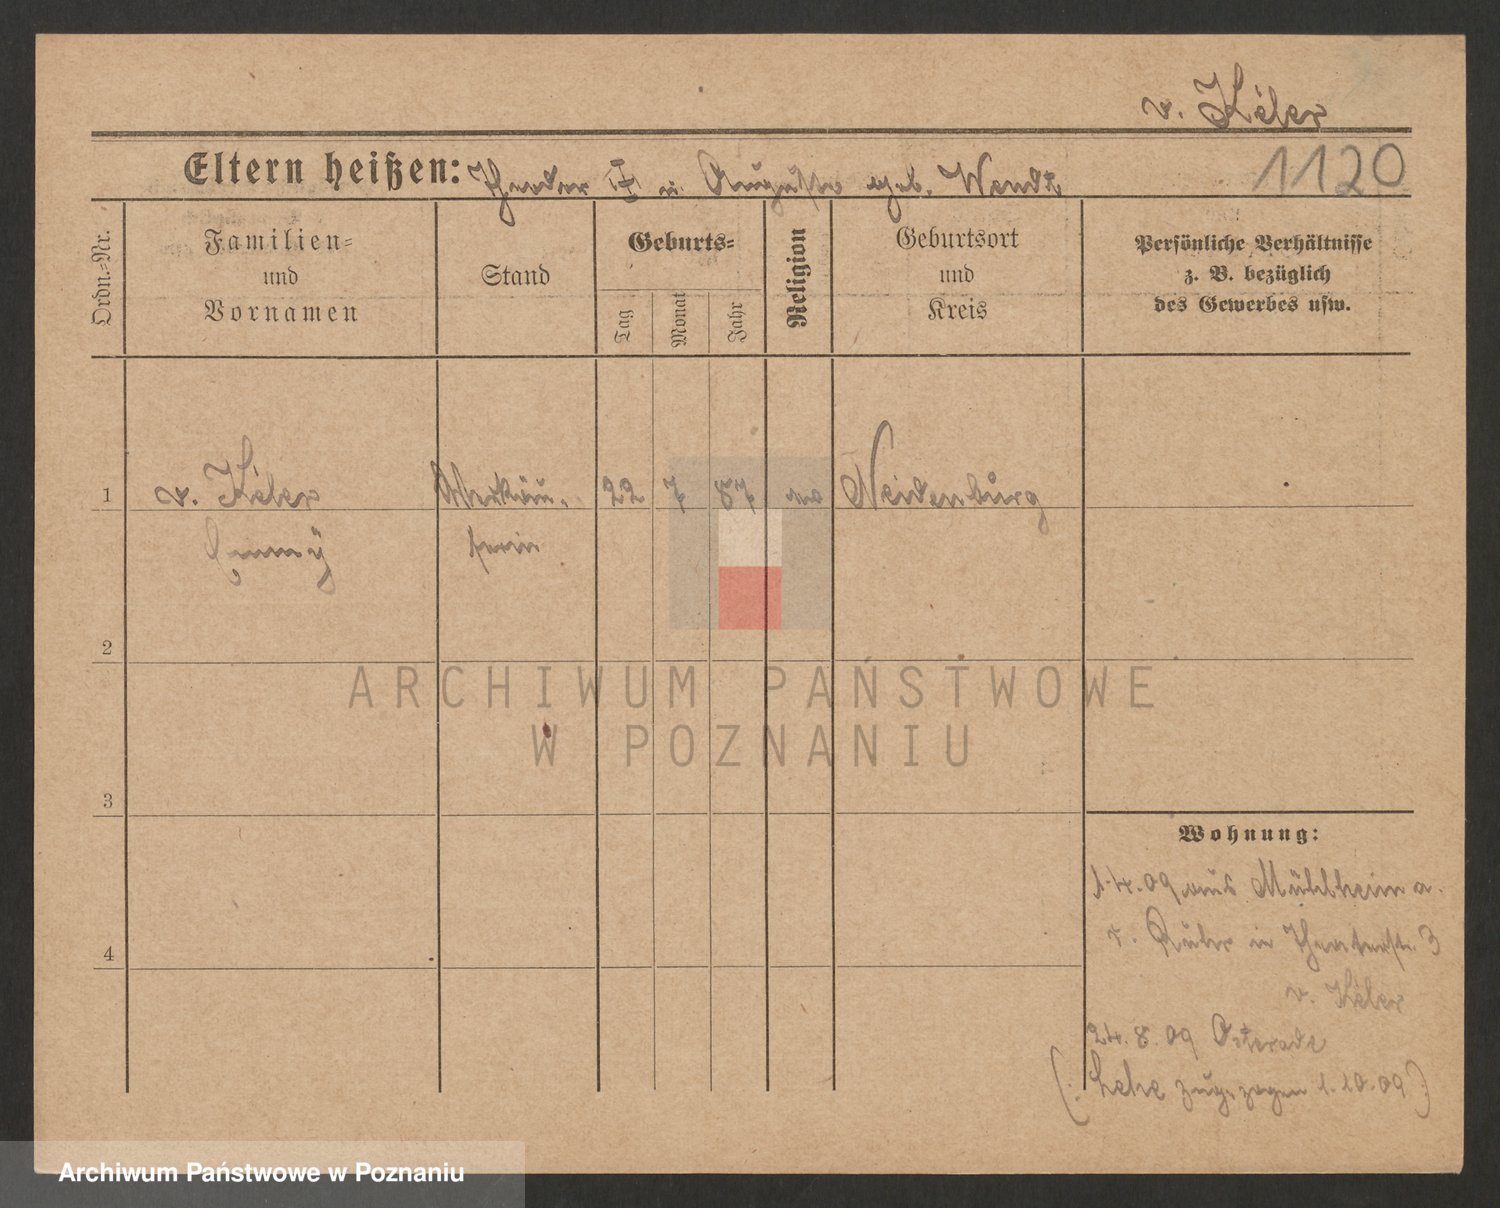 v. Kéler
Eltern heißen: Theodor † u. Auguste geb. Wendt
1120
Ordn.-Nr.
Familien-
und
Vornamen
Stand
Geburts-
Tag
Monat
Jahr
Religion
Geburtsort
und
Kreis
Persönliche Verhältnisse
z. B. bezüglich
des Gewerbes usw.
1
v. Kéler
Verkäu-
22
7
87
ev
Neidenburg
Emmy
ferin
2
ARCHIWUM PAŃSTWOWE
W POZNANIU
3
Wohnung:
1.4.09 aus Mühlheim a.
r. Ruhr in Theaterstr. 3
v. Kéler
4
24.8.09 Osterode
(: zugezogen 1.10.09 :)
Archiwum Państwowe w Poznaniu